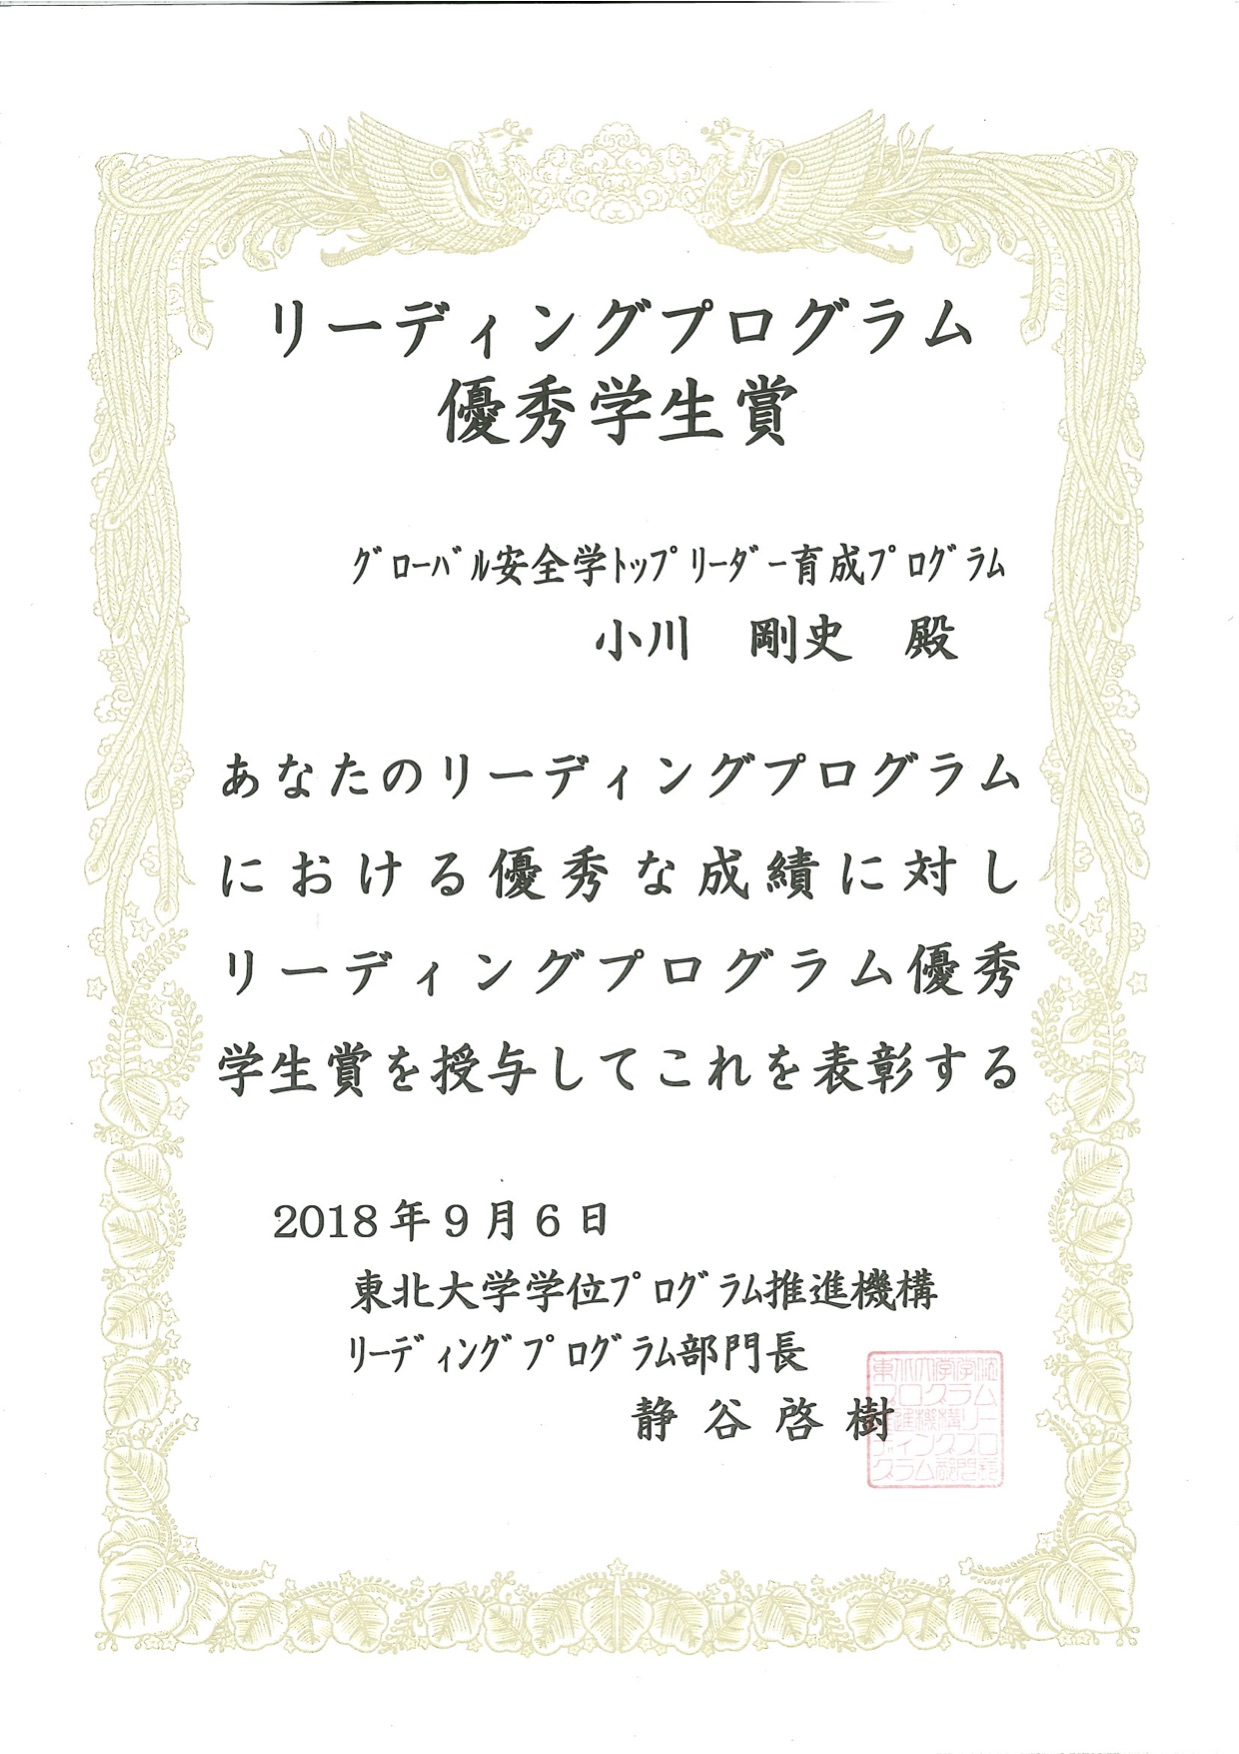 リーディングプログラム
優秀学生賞
グローバル安全学トップリーダー育成プログラム
小川 剛史 殿
あなたのリーディングプログラム
における優秀な成績に対し
リーディングプログラム優秀
学生賞を授与してこれを表彰する
2018年9月6日
東北大学学位プログラム推進機構
リーディングプログラム部門長
静谷啓樹
東北大学学位
プログラム
推進機構リー
ディングプロ
グラム部門長